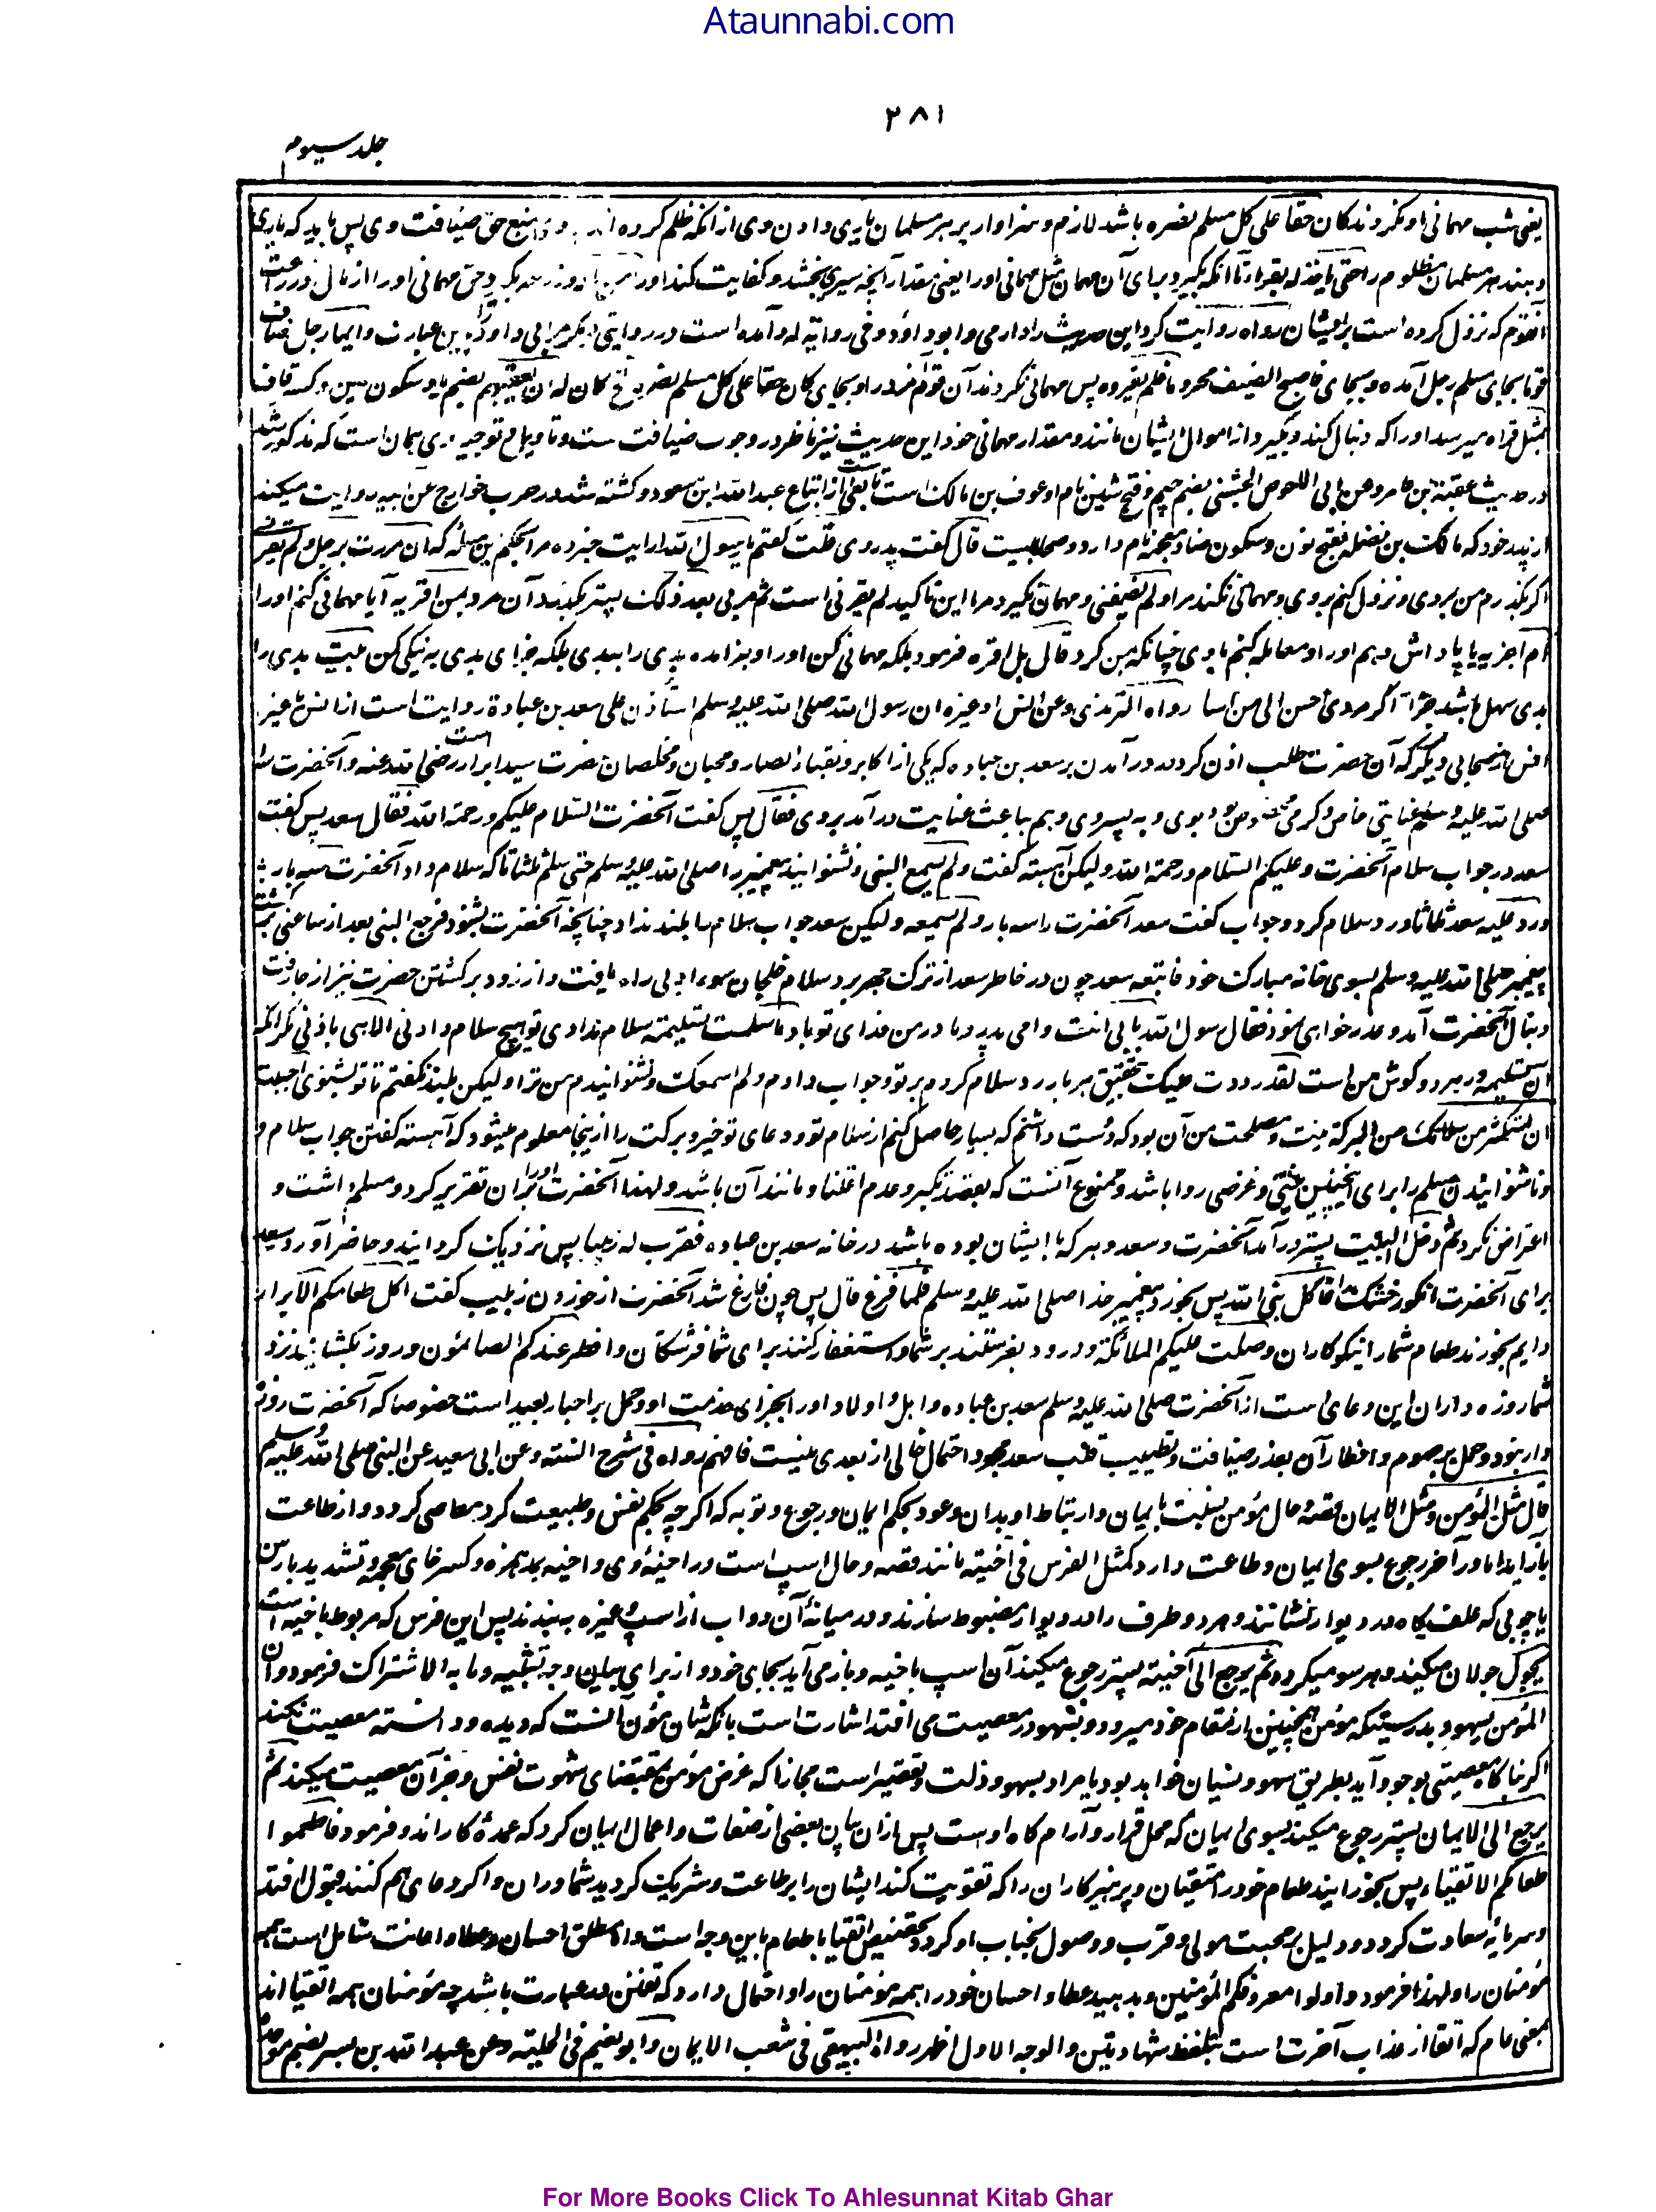 Ataunnabi.com
۳۸۱
جلد سیوم
یعنی شب مهمانی او نکردند کان حقا علی کل مسلم نصره باشد لازم و سزاوار بر هر مسلمان یاری دادن وی از آنکه ظلم کرده اند حق ضیافت وی پس باید که یاری
دهند هر مسلمان مظلوم را حتی یاخذ له بقراه تا آنکه بگیرد برای آن مهمان مثل مهمانی او را یعنی مقدار آنچه سیری بخشد و کفایت کند او را حق مهمانی او را از مال و زراعت
آنقوم که نزول کرده است برایشان رواه روایت کرد این حدیث را دارمی و ابو داؤد و فی روایة له و آمده است در روایتی دیگر مر ابی داؤد را باین عبارت و ایما رجل ضاف
قوما بجای مسلم رجل آمده و بجای فاصبح الضیف محروما فلم یقروه پس مهمانی نکردند آن قوم مر او را و بجای کان حقا علی کل مسلم نصره الخ کان له ان یعقبهم بضم یا و سکون عین و کسر قاف
بمثل قراه میرسد او را که دنبال کند و بگیرد از اموال ایشان مانند و مقدار مهمانی خود این حدیث نیز ناظر در وجوب ضیافت است و تاویل و توجیه وی همان است که مذکور شد
در حدیث عقبة بن عامر وعن ابی الاحوص الجشمی بضم جیم و فتح شین نام او عوف بن مالک است تابعی است از اتباع عبد الله ابن مسعود و کشته شد در حرب خوارج عن ابیه روایت میکند
از پدر خود که مالک بن نضله بفتح نون و سکون ضاد معجمه نام دارد و صحابیست قال گفت پدر وی قلت گفتم یا رسول الله ارایت خبر ده مرا بحکم این مسئله که ان مررت برجل فلم یقرنی
اگر بگذرم من بمردی و نزول کنم بروی و مهمانی نکند مرا و لم یضیفنی و مهمان نگیرد مرا این تاکید لم یقرنی است ثم مر بی بعد ذلک پستر بگذرد آن مرد بمن اقریه آیا مهمانی کنم او را
ام اجزیه یا پاداش دهم او را و معامله کنم با وی چنانکه بمن کرد قال بل اقره فرمود بلکه مهمانی کن او را و بزا مده بدی را ببدی بلکه جزای بدی به نیکی کن بیت بدی را
بدی سهل باشد جزا اگر مردی احسن الی من اسا رواه الترمذی وعن انس او غیره ان رسول الله صلی الله علیه وسلم استأذن علی سعد بن عبادة روایت است از انس یا غیر
انس از صحابی دیگر که آن حضرت طلب اذن کردند در آمدن بر سعد بن عباده که یکی از اکابر و نقباء انصار و محبان و مخلصان حضرت سید ابرار است رضی الله عنه و آنحضرت را
صلی الله علیه وسلم عنایتی خاص و کرمی مخصوص بود بوی و به پسر وی و هم باعث عنایت در آمد بروی فقال پس گفت آنحضرت السلام علیکم ورحمة الله فقال سعد پس گفت
سعد در جواب سلام آنحضرت وعلیکم السلام ورحمة الله ولیکن آهسته گفت ولم یسمع النبی و نشنوانید پیغمبر را صلی الله علیه وسلم حتی سلم ثلثا تا آنکه سلام داد آنحضرت سه بار
ورد علیه سعد ثلاثا و رد سلام کرد و جواب گفت سعد آنحضرت را سه بار ولم یسمعه ولیکن سعد جواب سلام را بلند نداد چنانچه آنحضرت بشنود فرجع النبی بعد از ساعتی برگشت
پیغمبر صلی الله علیه وسلم بسوی خانه مبارک خود فاتبعه سعد چون در خاطر سعد از ترک جهر برد سلام خلجان سوء ادبی راه یافت و از زود برگشتن حضرت نیز از جا رفت
دنبال آنحضرت آمد و عذر خواهی نمود فقال یا رسول الله بابی انت و امی پدر و مادر من فدای تو باد ما سلمت تسلیمة سلام ندادی تو هیچ سلام دادنی الا هی باذنی مگر آنکه
آن تسلیمه در هر دو گوش من است لقد رددت علیک بتحقیق هر بار رد سلام کردم بر تو و جواب دادم ولم اسمعک و نشنوانیدم من ترا و لیکن بلند نگفتم تا تو بشنوی احببت
ان استکثر من سلامک ومن البرکة نیت و مصلحت من آن بود که دوست داشتم که بسیار حاصل کنم از سلام تو و دعای تو خیر و برکت را ازینجا معلوم میشود که آهسته گفتن جواب سلام و
و ناشنوانیدن مسلم را برای اینچنین نیتی و غرضی روا باشد و ممنوع آنست که بقصد تکبر و عدم اعتنا و مانند آن باشد و لهذا آنحضرت او را بران تقریر کرد و مسلم داشت و
اعتراض نکرد ثم دخل البیت پستر در آمد آنحضرت و سعد و هر که با ایشان بوده باشد در خانه سعد بن عباده فقرب له زبیبا پس نزدیک گردانید و حاضر آورد سعد
برای آنحضرت انگور خشک را فاکل نبی الله پس بخورد پیغمبر خدا صلی الله علیه وسلم فلما فرغ قال پس چون فارغ شد آنحضرت از خوردن زبیب گفت اکل طعامکم الابرار
دایم بخورند طعام شما را نیکوکاران وصلت علیکم الملائکة و درود بفرستند بر شما و استغفار کنند برای شما فرشتگان وافطر عندکم الصائمون و روزه بکشایند نزد
شما روزه داران این دعای است از آنحضرت صلی الله علیه وسلم سعد بن عباده و اهل و اولاد او را بجزای خدمت او و حمل بر اخبار بعید است خصوصا که آنحضرت روزه
دار بود و حمل بر صوم و افطار آن بعذر ضیافت و تطییب قلب سعد مجرد احتمال خالی از بعدی نیست فافهم رواه فی شرح السنة وعن ابی سعید عن النبی صلی الله علیه وسلم
قال مثل المؤمن ومثل الایمان قصه و حال مؤمن بنسبت بایمان و ارتباط او بدان و عود بحکم ایمان و رجوع و توبه که اگر چه بحکم نفس و طبیعت گرد معاصی گردد و از طاعت
باز آید اما در آخر رجوع بسوی ایمان و طاعت دارد کمثل الفرس فی آخیته مانند قصه و حال اسپ است در اخیهٔ وی و اخیه بمد همزه و کسر خای معجمه و تشدید یا رسن
یا چوبی که علف گاه در دیوار نشانند و هر دو طرف را در دیوار مضبوط سازند و در میانهٔ آن دواب از اسپ و غیره ببندند پس این فرس که مربوط باخیه است
یجول جولان میکند و هر سو میگردد ثم یرجع الی آخیته پستر رجوع میکند آن اسپ باخیه و باز می آید بجای خود و از برای بیان وجه تشبیه و ما به الاشتراک فرمود وان
المؤمن یسهو بدرستیکه مؤمن همچنین از مقام خود میرود و بسهو در معصیت می افتد اشارت است بانکه شان مؤمن آنست که دیده و دانسته معصیت نکند
اگر ناگاه معصیتی بوجود آید بطریق سهو و نسیان خواهد بود یا مراد بسهو ذلت و تقصیر است مجازا که غرض مؤمن بمقتضای شهوت نفس و جز آن معصیت میکند ثم
یرجع الی الایمان پستر رجوع میکند بسوی ایمان که محل قرار و آرام گاه اوست پس ازان بیان بعضی از صفات و اعمال ایمان کرد که عمدهٔ کار اند و فرمود فاطعموا
طعامکم الاتقیاء پس بخورانید طعام خود را متقیان و پرهیزکاران را که تقویت کند ایشان را بر طاعت و شریک گردید شما دران و اگر دعای هم کنند قبول افتد
و سرمایه سعادت گردد و دلیل بر محبت مولی و قرب و وصول بجناب او گردد تخصیص اتقیا باطعام باین وجه است و الا مطلق احسان و عطا و اعانت شامل است همه
مؤمنان را و لهذا فرمود واولوا معروفکم المؤمنین و بدهید عطا و احسان خود را همه مؤمنان را و احتمال دارد که تفنن در عبارت باشد چه مؤمنان همه اتقیا اند
بمعنی عام که اتقا از عذاب آخرت است بتلفظ شهادتین والوجه الاول اظهر رواه البیهقی فی شعب الایمان وابو نعیم فی الحلیة وعن عبد الله بن بسر بضم موحده
For More Books Click To Ahlesunnat Kitab Ghar